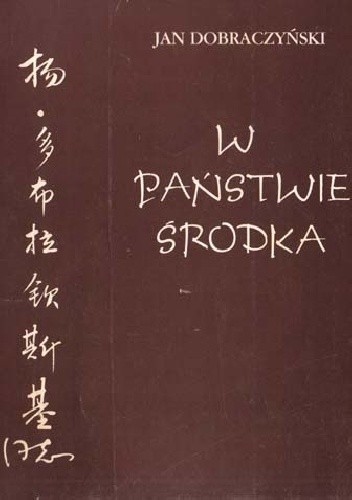 JAN DOBRACZYŃSKI
W
PAŃSTWIE
ŚRODKA
杨·多布拉钦斯基同志